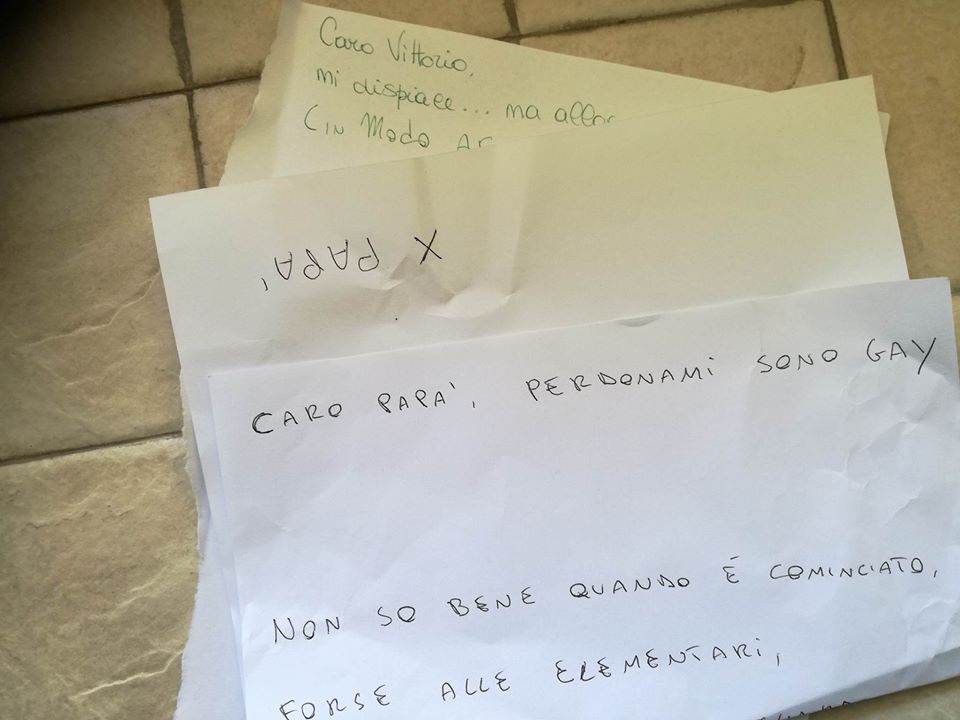 Caro Vittorio,
mi dispiace... ma
(in Modo
X PAPA'
CARO PAPA', PERDONAMI SONO GAY
NON SO BENE QUANDO È COMINCIATO,
FORSE ALLE ELEMENTARI,